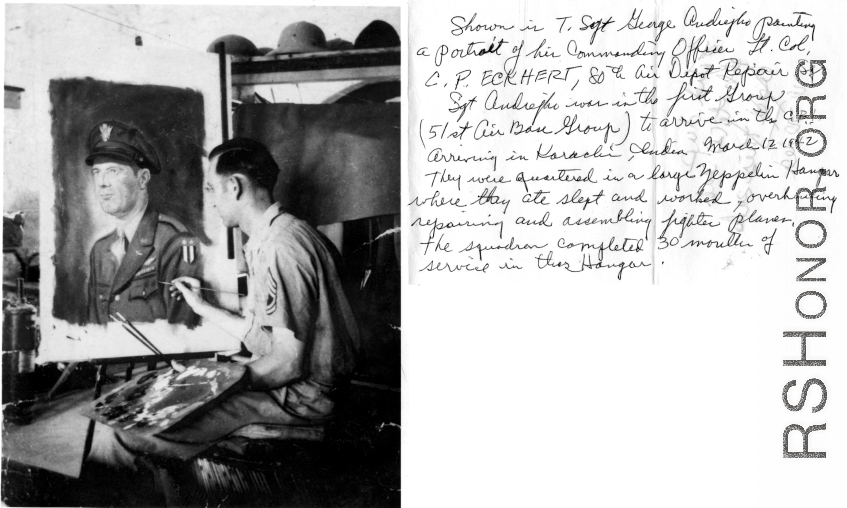 Shown is T. Sgt George Andrejko painting
a portrait of his Commanding Officer Lt. Col,
C. P. ECKHERT, 80th Air Depot Repair
Sgt Andrejko was in the first Group
(51st Air Base Group) to arrive in the
arriving in Karachi, India March 12 1942
They were quartered in a large Zeppelin Hangar
where they ate slept and worked, overhauling
repairing and assembling fighter planes,
The squadron completed 30 months of
service in this Hangar.
RSHONOR.ORG